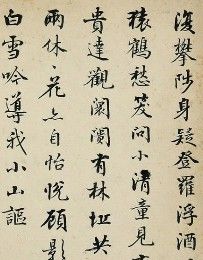 復攀陟身疑登羅浮酒
猿鶴愁笑问小清童見
貴達觀闤闠有林坵共
兩休花自怡悅顧影
白雪吟導我小山謳